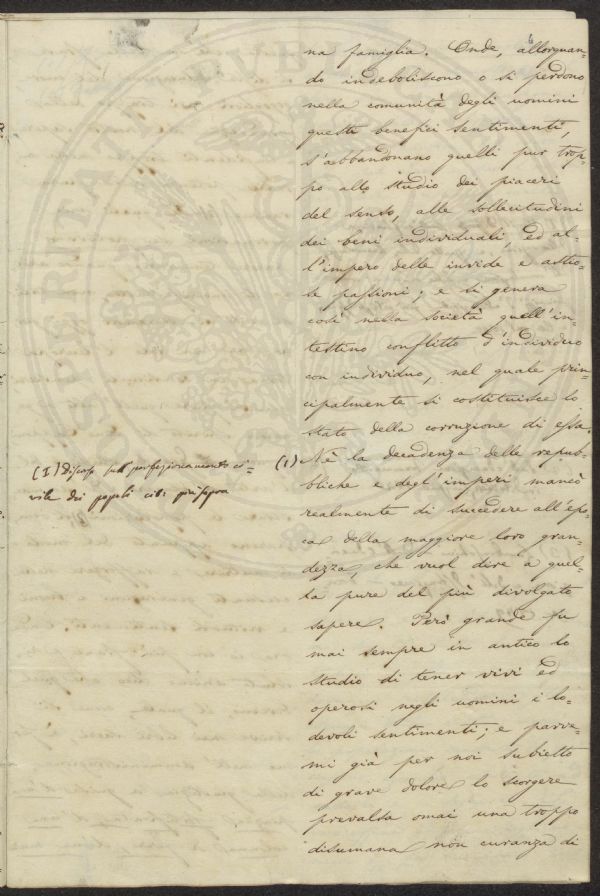 6
na famiglia. Onde, allorquan=
do indeboliscono o si perdono
nella comunità degli uomini
questi benefici sentimenti,
s'abbandonano quelli pur trop=
po allo studio dei piaceri
del senso, alle sollecitudini
dei beni individuali, ed al=
l'impero delle invide e astio=
se passioni; e si genera
così nella società quell'in=
testino conflitto d'individuo
con individuo, nel quale prin=
cipalmente si costituisce lo
stato della corruzione di essa.
(1) Nè la decadenza delle repub=
bliche e degl'imperi mancò
realmente di succedere all'epo=
ca della maggiore loro gran=
dezza, che vuol dire a quel=
la pure del più divolgato
sapere. Però grande fu
mai sempre in antico lo
studio di tener vivi ed
operosi negli uomini i lo=
devoli sentimenti; e parve=
mi già per noi subietto
di grave dolore lo scorgere
prevalsa omai una troppo
disumana non curanza di
(1) Discorso sull' perfezionamento ci=
vile dei popoli cit: più sopra